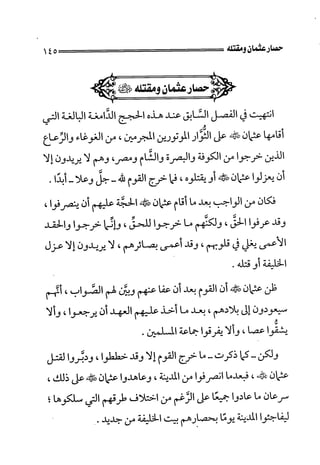 حصار عثمان ومقتله
١٤٥
حصار عثمان ومقتله ﷺ
انتهيت في الفصل السَّابق عند هذه الحجج الدَّامغة البالغة التي
أقامها عثمان ﷺ على الثُّوَّار الموتورين المجرمين ، من الغوغاء والرعاع
الذين خرجوا من الكوفة والبصرة والشَّام ومصر، وهم لا يريدون إلا
أن يعزلوا عثمان ﷺ أو يقتلوه ، فما خرج القوم لله - جلَّ وعلا - أبدًا .
فكان من الواجب بعد ما أقام عثمان ﷺ الحجَّة عليهم أن ينصرفوا ،
وقد عرفوا الحقَّ ، ولكنَّهم ما خرجوا للحقِّ ، وإنَّما خرجوا والحقد
الأعمى يغلي في قلوبهم ، وقد أعمى بصائرهم ، لا يريدون إلا عزل
الخليفة أو قتله .
ظن عثمان ﷺ أن القوم بعد أن عفا عنهم وبيَّن لهم الصَّواب ، أنَّهم
سيعودون إلى بلادهم ، بعد ما أخذ عليهم العهد أن يرجعوا ، وألا
يشقُّوا عصا ، وألا يفرقوا جماعة المسلمين .
ولكن - كما ذكرت - ما خرج القوم إلا وقد خططوا ، ودبَّروا لقتل
عثمان ﷺ ، فبعدما انصرفوا من المدينة ، وعاهدوا عثمان ﷺ على ذلك ،
سرعان ما عادوا جميعًا على الرَّغم من اختلاف طرقهم التي سلكوها ؛
ليفاجئوا المدينة يومًا بحصارهم بيت الخليفة من جديد .